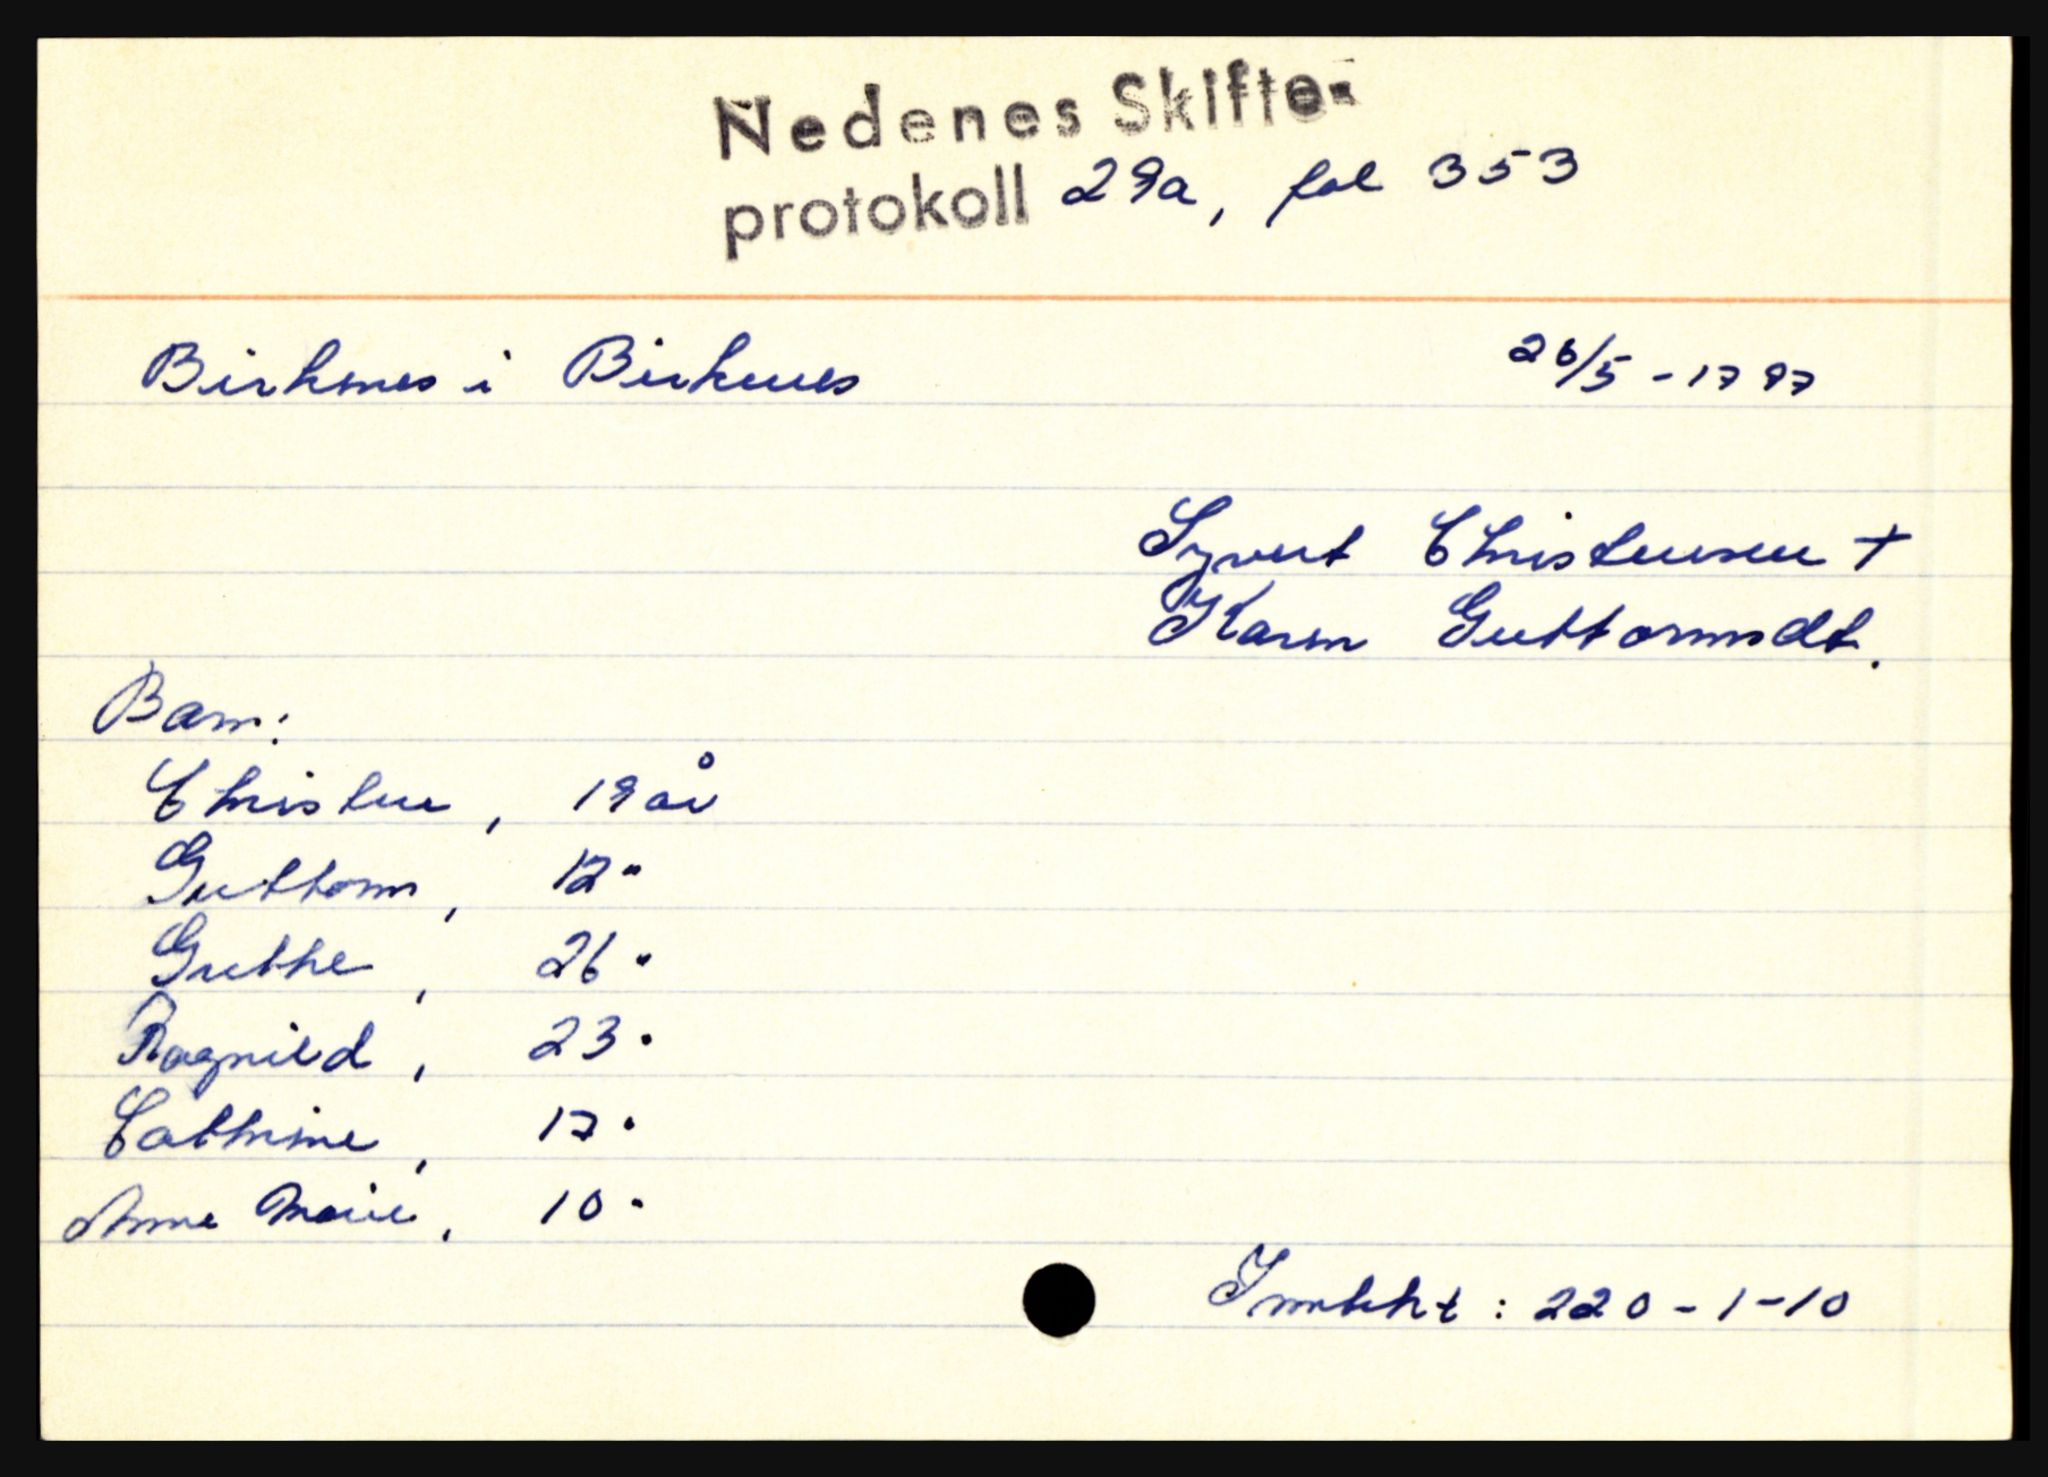 Nedenes Skifte-
protokoll 29a, fol 353
Birkenes i Birkenes 26/5 - 1797
Syvert Christensen +
Karen Guttormsdt.
Barn:
Christen, 19 år
Guttorm, 12 "
Grethe, 26 "
Ragnild, 23 "
Cathrine, 17 "
Anne Marie, 10 "
: 220-1-10